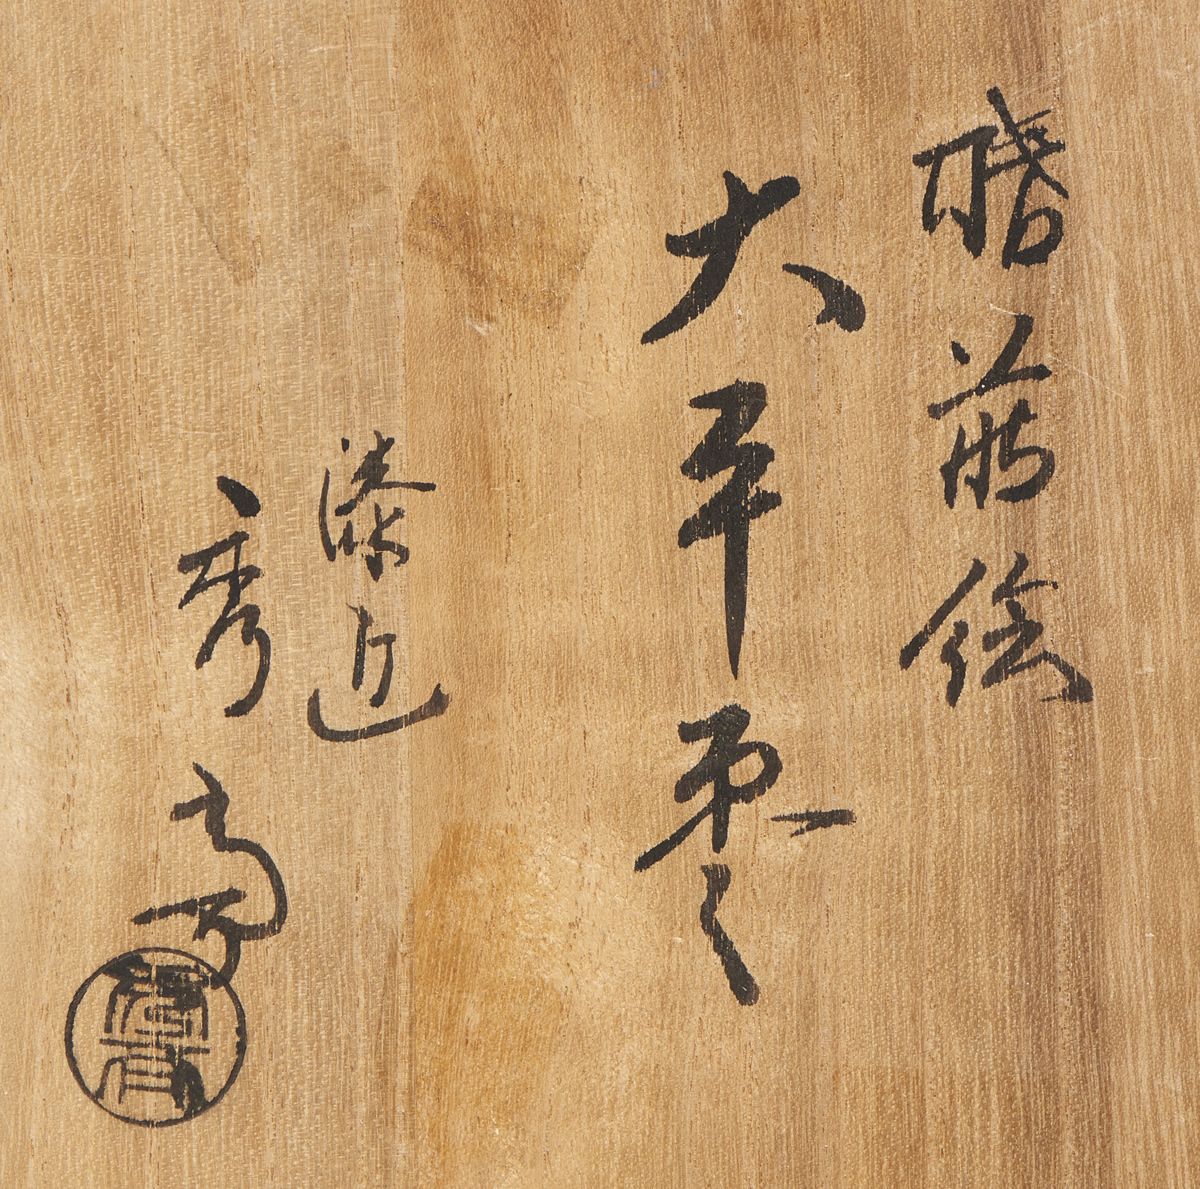 蒔絵
大平棗
漆匠
秀斎